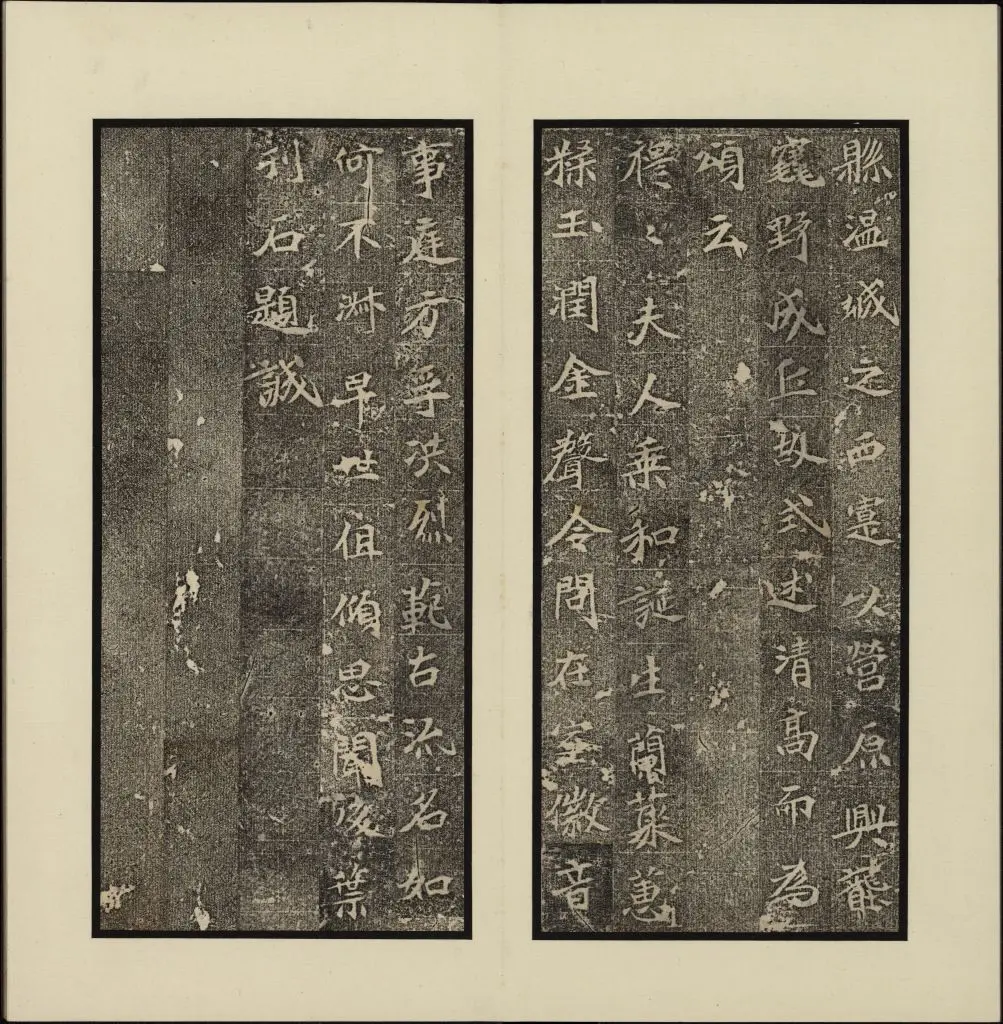 縣溫城之西寔以營原興蘢
竁野成丘故式述清高而為
頌云
穆〻夫人乗和誕生蘭蕙
糅玉潤金聲令問在室徽音
事庭方孚洪烈範古流名如
何不淋早世徂傾思聞後葉
刊石題誠